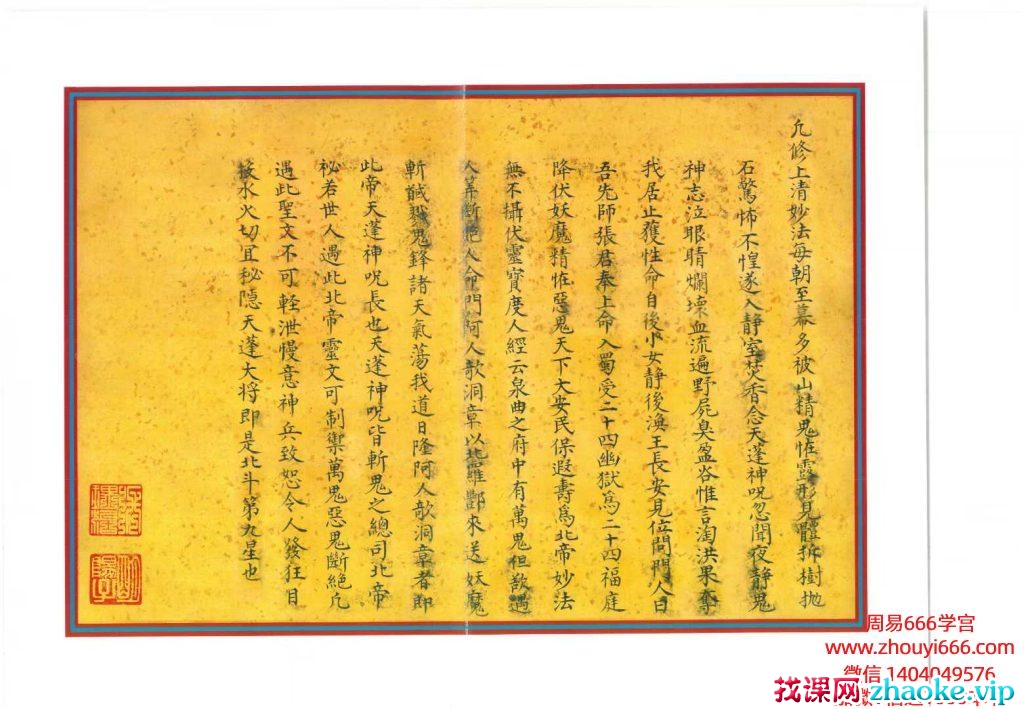 凢修上清妙法每朝至幕多被山精鬼恠露形見體折樹抛
石驚怖不惶遂入静室焚香念天蓬神呪忽聞夜静鬼
神志泣眼睛爛壊血流遍野屍臭盈谷惟言淘洪果奪
我居止獲性命自後小女静後渙王長安見位閒門人曰
吾先師張君奉上命入蜀受二十四幽獄爲二十四福庭
降伏妖魔精恠惡鬼天下大安民保遐壽爲北帝妙法
無不攝伏靈寳度人經云泉曲之府中有萬鬼但欲遏
人筭斷絶人命門阿人歌洞章以攝羅酆來送妖魔
斬馘戮鬼鋒諸天氣蕩我道日隆阿人歌洞章者即
此帝天蓬神呪長也天蓬神呪皆斬鬼之總司北帝
祕若世人遇此北帝靈文可制禦萬鬼惡鬼斷絶凢
遇此聖文不可軽泄慢意神兵致恕令人發狂目
被水火切宜秘隱天蓬大将即是北斗第九星也
周易666学宫
www.zhouyi666.com
微信 1404049576
找课网 zhaoke.vip